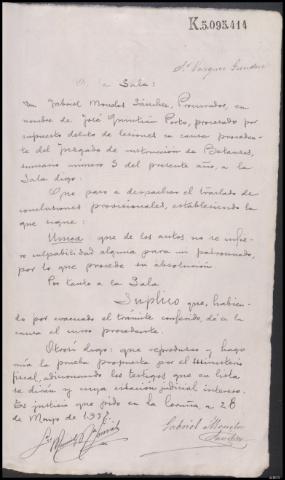 K.5.093.414
Sr Vazquez Gundin
A la Sala:
Don Gabriel Mouelos Sánchez, Procurador, en
nombre de José Quintián Porto, procesado por
supuesto delito de lesiones en causa proceden-
te del Juzgado de instrucción de Betanzos,
sumario número 5 del presente año, a la
Sala digo:
Que paso a despachar el traslado de
conclusiones provisionales, estableciendo la
que sigue:
Unica que de los autos no se infie-
re culpabilidad alguna para mi patrocinado,
por lo que procede su absolución
Por tanto a la Sala
Suplico que, habien-
do por evacuado el trámite conferido, dé a la
causa el curso procedente.
Otrosí digo: que reproduzco y hago
mía la prueba propuesta por el Ministerio
fiscal, adicionando los testigos que en lista
se dirán y cuya citación judicial intereso.
Es justicia que pido en la Coruña a 28
de Mayo de 1937.
Gabriel